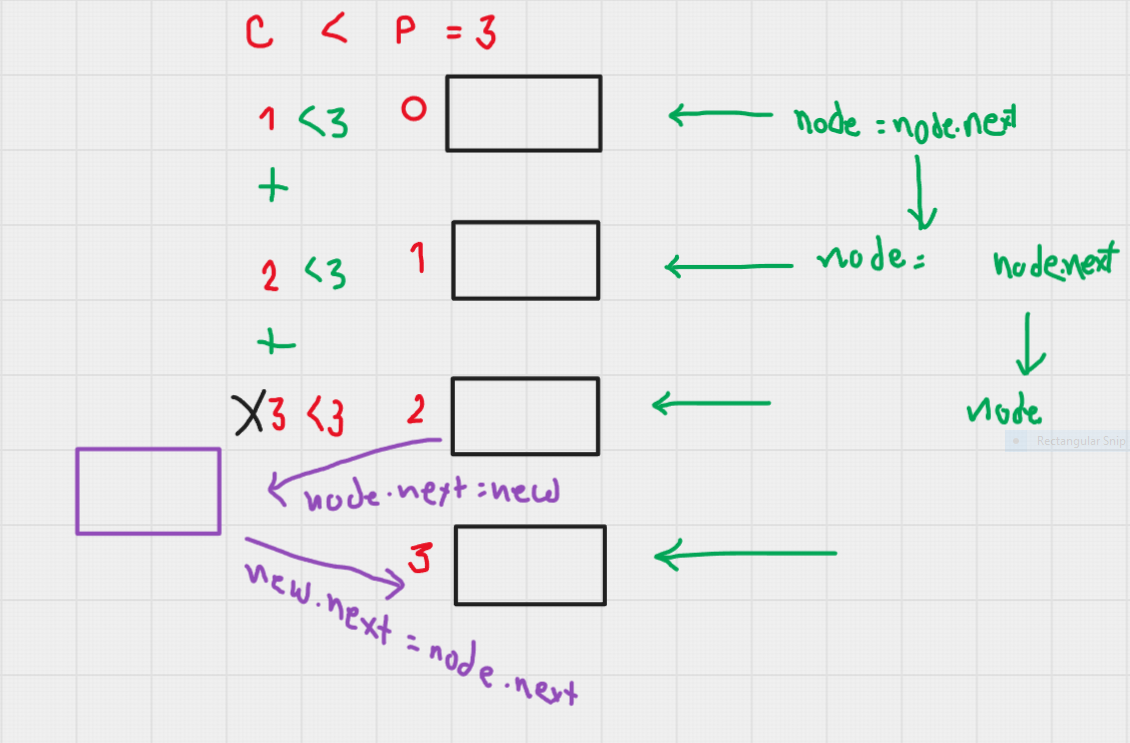 C < P = 3
1 < 3 0 node = node.next
+
2 < 3 1 node = node.next
+
X 3 < 3 2 node
Rectangular Snip
node.next = new
3
new.next = node.next